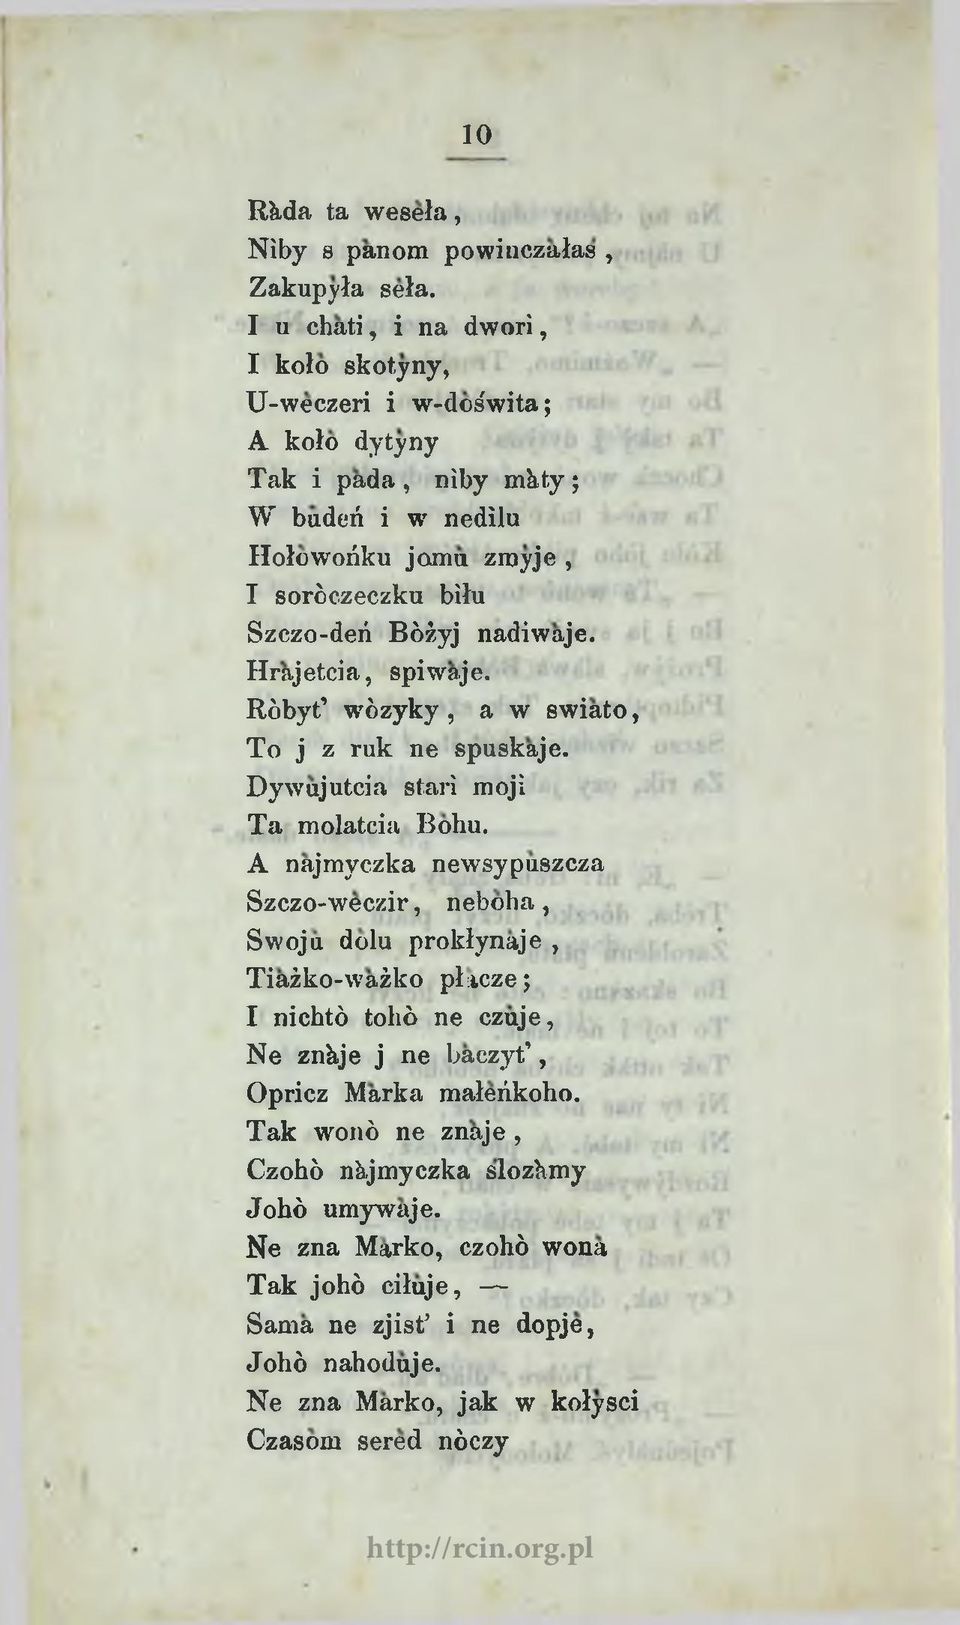 10
Ràda ta wesèła,
Nìby s pànom powinczàłaś,
Zakupỳła sèła.
I u chàti, i na dworì,
I kołò skotỳny,
U-wèczeri i w-dòświta;
A kołò dytỳny
Tak i pàda, nìby màty;
W bùdeń i w nedìlu
Hołòwońku jomù zmỳje,
I soròczeczku bìłu
Szczo-deń Bòżyj nadiwàje.
Hràjetcia, spiwàje.
Ròbyt’ wòzyky, a w swiàto,
To j z ruk ne spuskàje.
Dywùjutcia starì mojì
Ta molatcia Bòhu.
A nàjmyczka newsypùszcza
Szczo-wèczir, nebòha,
Swojù dòlu prokłynàje,
Tiàżko-wàżko płàcze;
I nichtò tohò ne czùje,
Ne znàje j ne bàczyt’,
Opricz Màrka małèńkoho.
Tak wonò ne znàje,
Czohò nàjmyczka ślozàmy
Johò umywàje.
Ne zna Màrko, czohò wonà
Tak johò ciłùje, —
Samà ne zjist’ i ne dopjè,
Johò nahodùje.
Ne zna Màrko, jak w kołỳsci
Czasòm serèd nòczy
http://rcin.org.pl